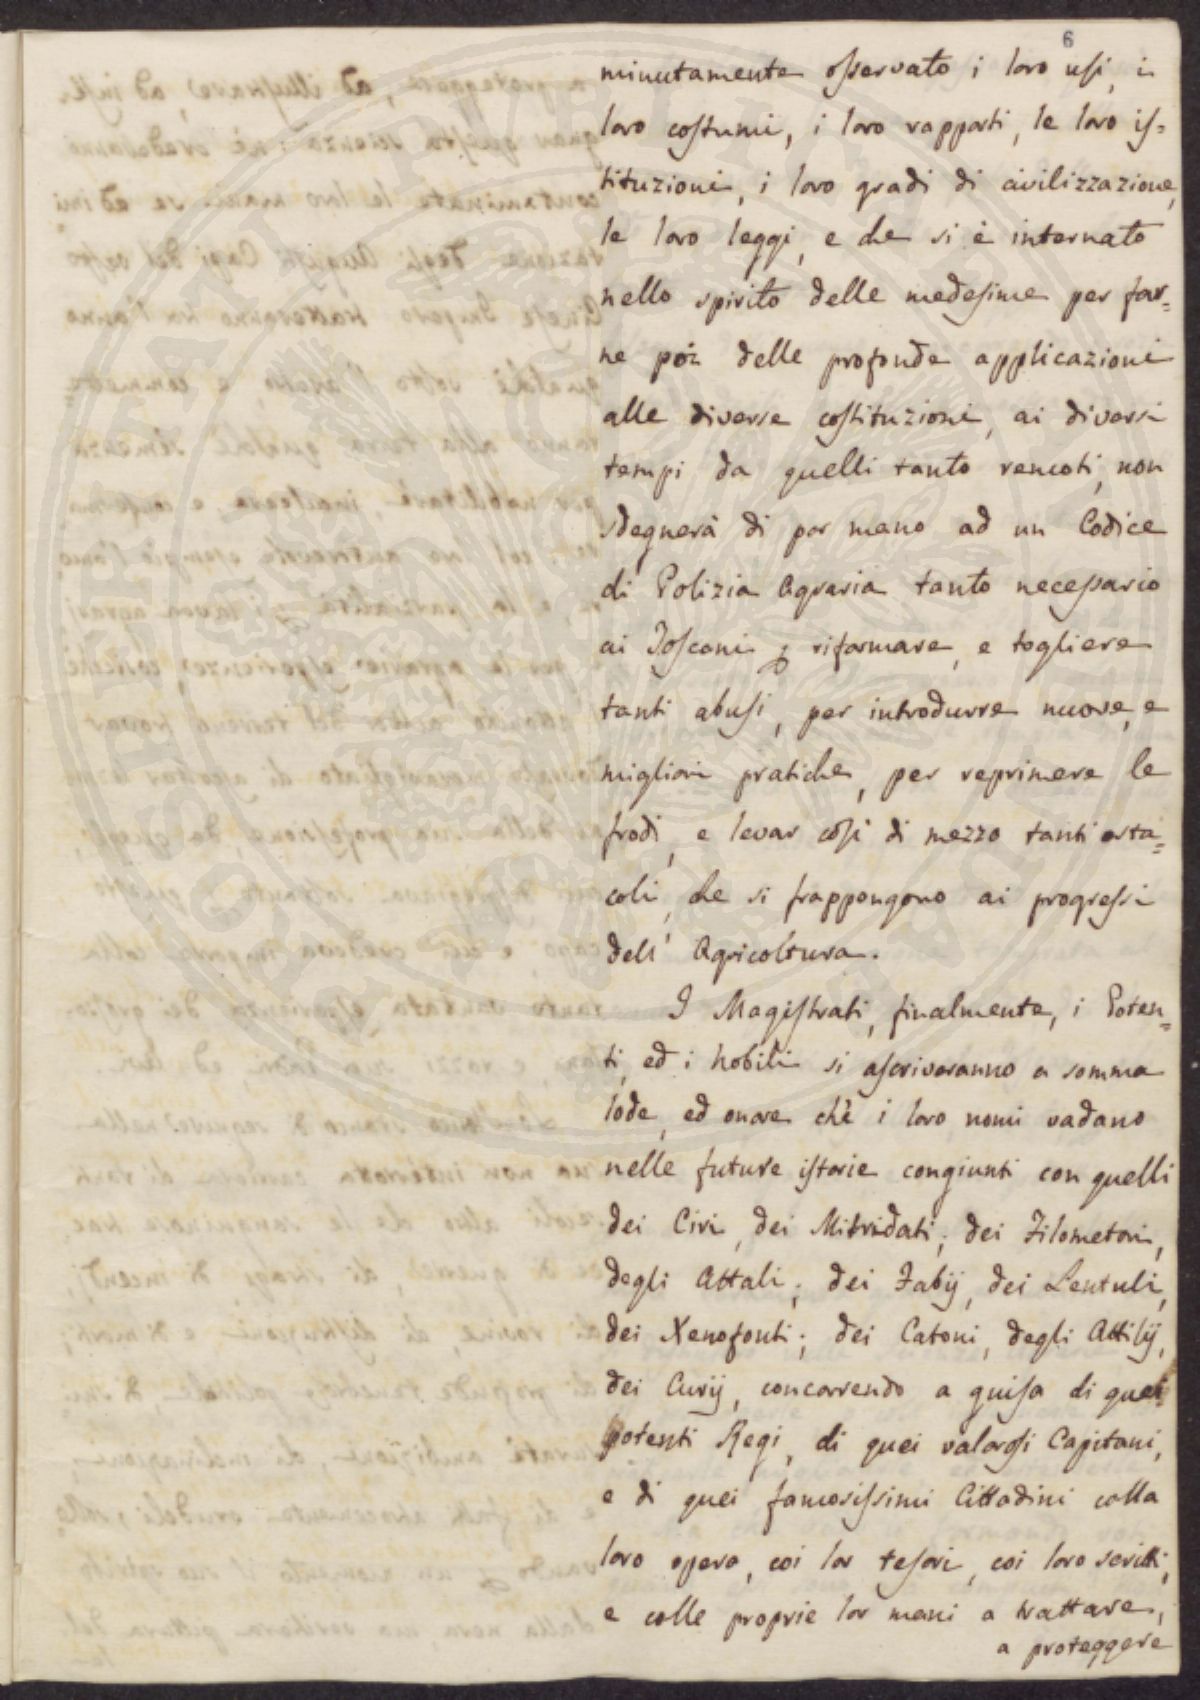 6
minutamente osservato i loro usi, i
loro costumi, i loro rapporti, le loro is=
tituzioni, i loro gradi di civilizzazione,
le loro leggi, e che si è internato
nello spirito delle medesime per far=
ne poi delle profonde applicazioni
alle diverse costituzioni, ai diversi
tempi da quelli tanto remoti, non
sdegnerà di por mano ad un Codice
di Polizia Agraria tanto necessario
ai Toscani p riformare, e togliere
tanti abusi, per introdurre nuove, e
migliori pratiche, per reprimere le
frodi, e levar così di mezzo tanti osta=
coli, che si frappongono ai progressi
dell' Agricoltura.
I Magistrati, finalmente, i Poten=
ti, ed i Nobili si ascriveranno a somma
lode, ed onore chè i loro nomi vadano
nelle future istorie congiunti con quelli
dei Ciri, dei Mitridati, dei Filometori,
degli Attali; dei Fabij, dei Lentuli,
dei Xenofonti; dei Catoni, degli Attilij,
dei Curij, concorrendo a guisa di quei
potenti Regi, di quei valorosi Capitani,
e di quei famosissimi Cittadini colla
loro opera, coi lor tesori, coi loro scritti,
e colle proprie lor mani a trattare,
a proteggere